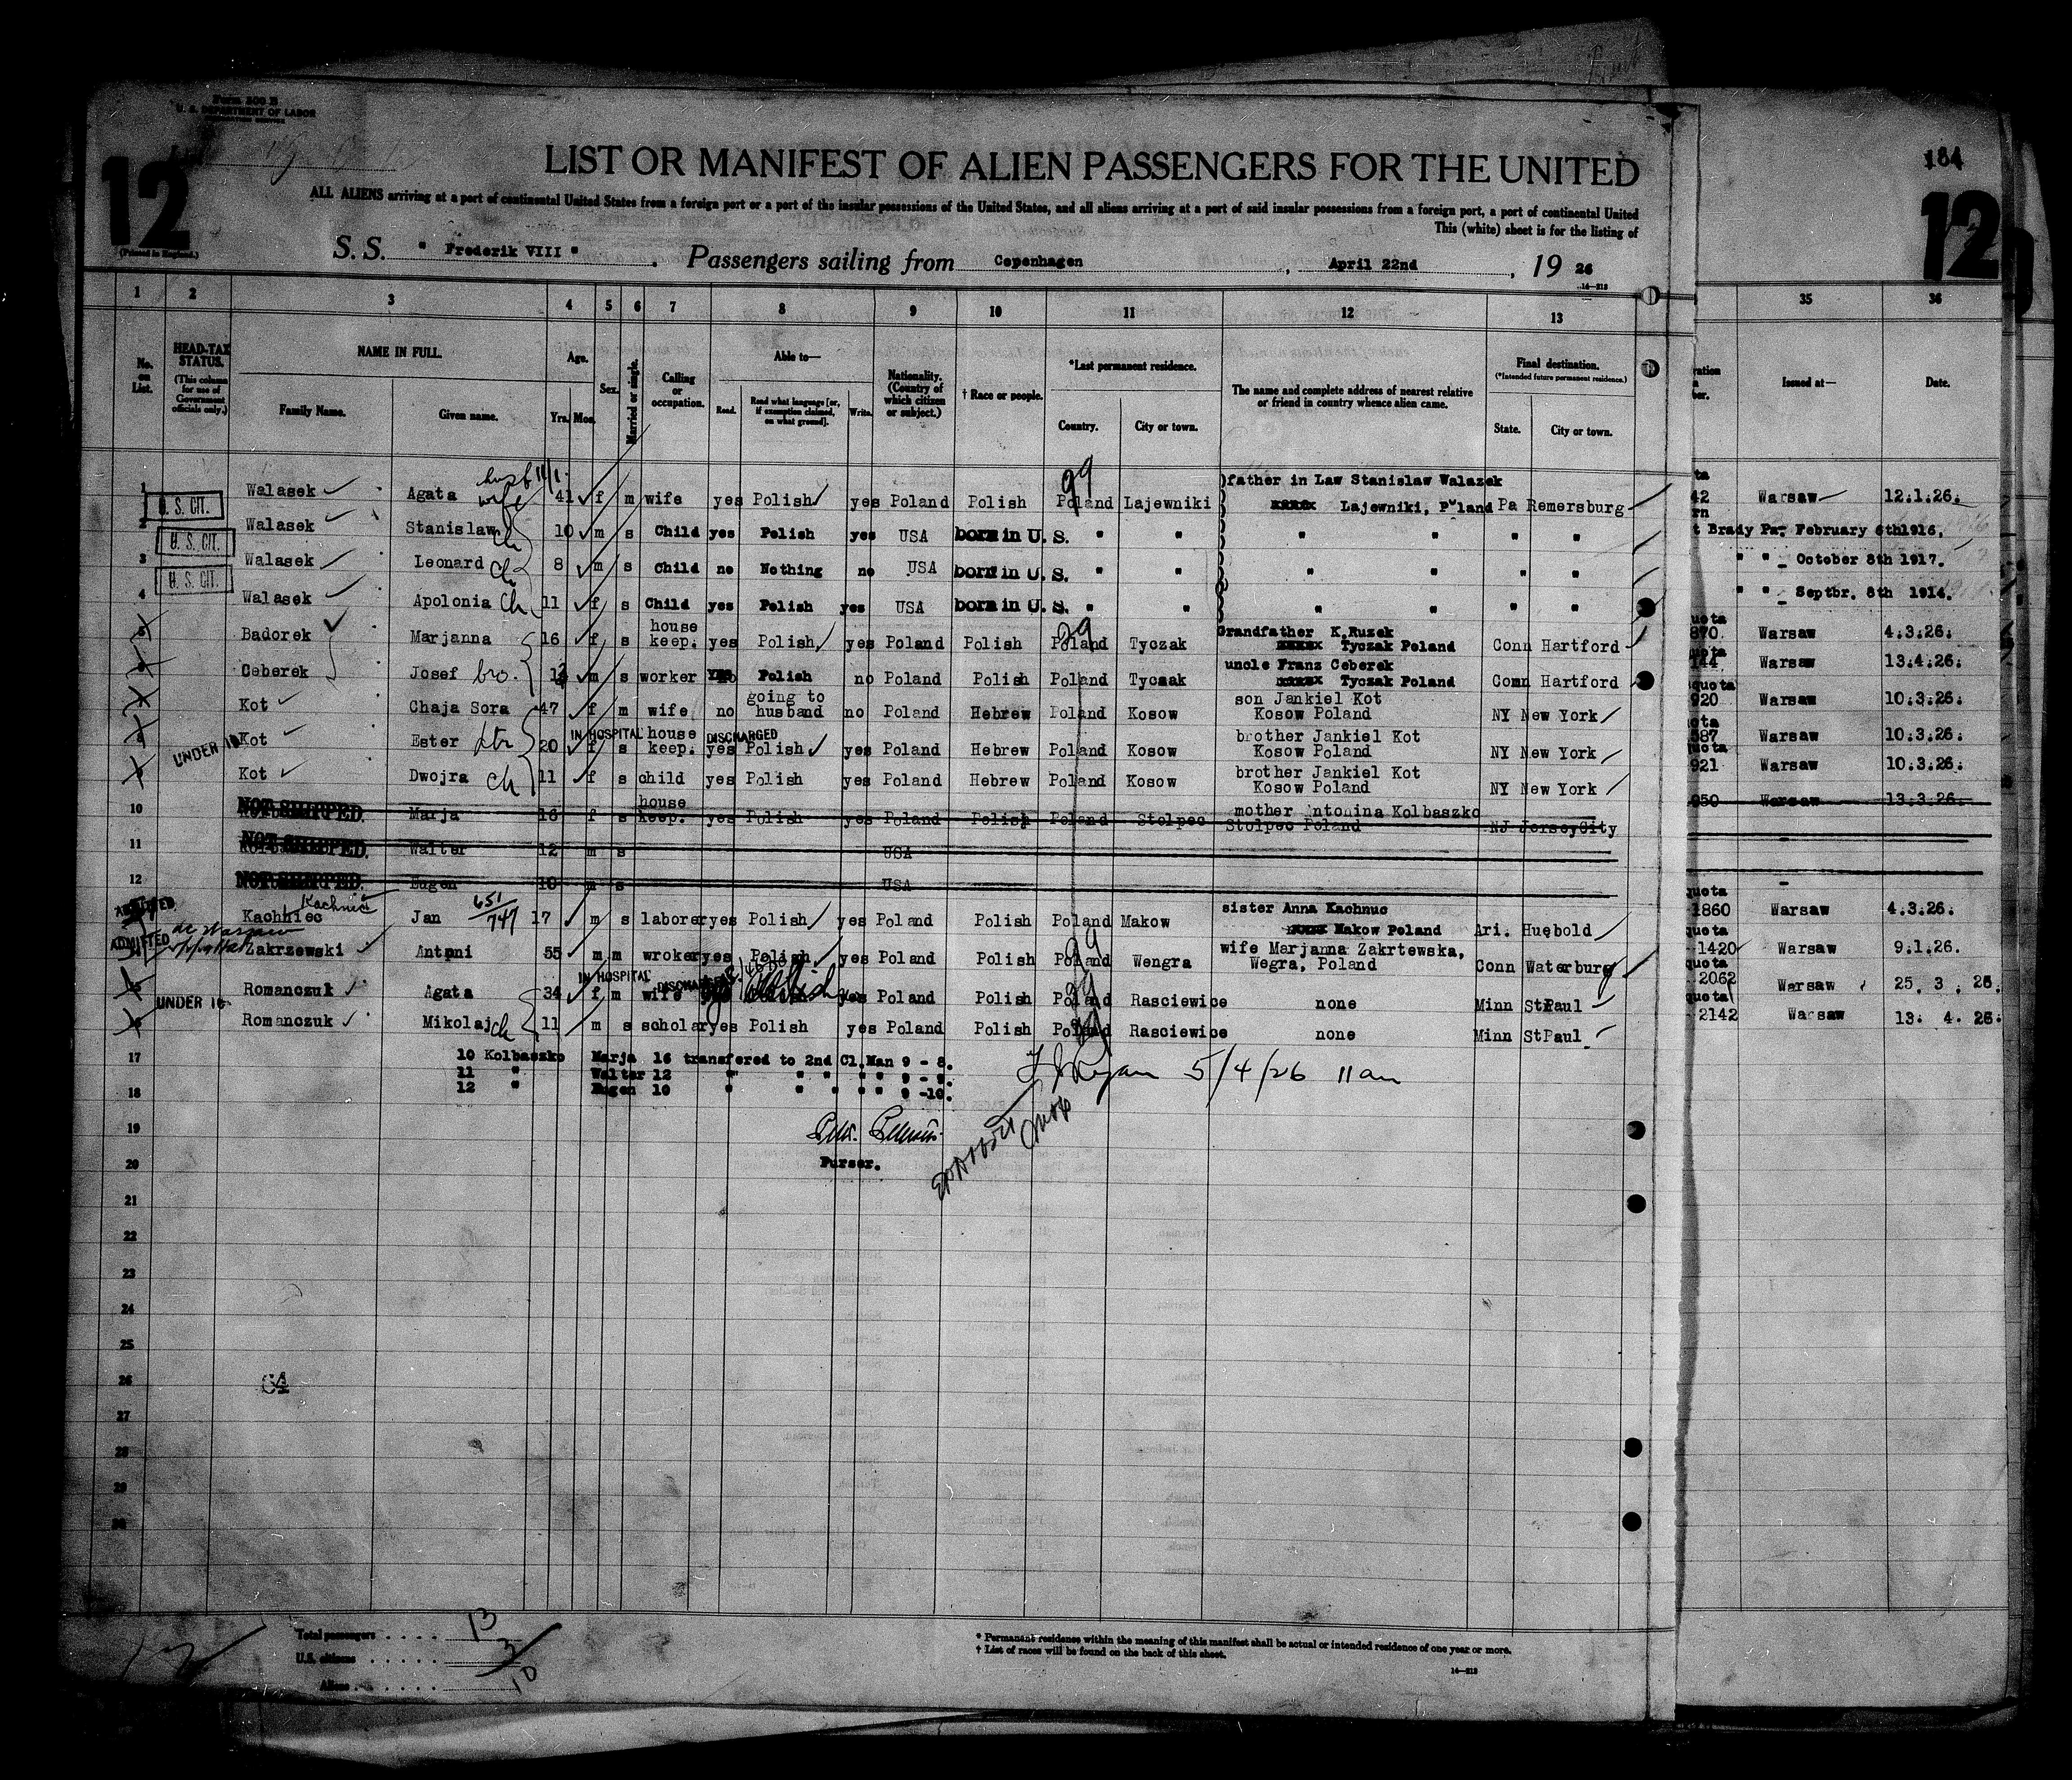 Form 500 B
U. S. DEPARTMENT OF LABOR
184
12
12
(Printed in England.)
LIST OR MANIFEST OF ALIEN PASSENGERS FOR THE UNITED
ALL ALIENS arriving at a port of continental United States from a foreign port or a port of the insular possessions of the United States, and all aliens arriving at a port of said insular possessions from a foreign port, a port of continental United
This (white) sheet is for the listing of
S. S. " Frederik VIII " Passengers sailing from Copenhagen, April 22nd, 19 26
14—213
1 2 3 4 5 6 7 8 9 10 11 12 13 35 36
No. on List.
HEAD-TAX STATUS. (This column for use of Government officials only.)
NAME IN FULL.
Family Name. Given name.
Age. Yrs. Mos.
Sex.
Married or single.
Calling or occupation.
Able to—
Read. Read what language [or, if exemption claimed, on what ground]. Write.
Nationality. (Country of which citizen or subject.)
† Race or people.
*Last permanent residence.
Country. City or town.
The name and complete address of nearest relative or friend in country whence alien came.
Final destination. (*Intended future permanent residence.)
State. City or town.
Issued at— Date.
1 U. S. CIT. Walasek Agata wife 41 f m wife yes Polish yes Poland Polish Poland Lajewniki father in Law Stanislaw Walazek Lajewniki, Poland Pa Remersburg 42 Warsaw 12.1.26.
2 U. S. CIT. Walasek Stanislaw ch 10 m s Child yes Polish yes USA born in U. S. " " " " " " t Brady Pa. February 6th1916.
3 U. S. CIT. Walasek Leonard ch 8 m s Child no Nothing no USA born in U. S. " " " " " " " " October 8th 1917.
4 Walasek Apolonia ch 11 f s Child yes Polish yes USA born in U. S. " " " " " " " " Septbr. 8th 1914.
5 Badorek Marjanna 16 f s house keep. yes Polish yes Poland Polish Poland Tyczak Grandfather K.Ruzek Tyczak Poland Conn Hartford 870 Warsaw 4.3.26.
6 Ceberek Josef bro. m s worker Polish no Poland Polish Poland Tyczak uncle Franz Ceberek Tyczak Poland Conn Hartford 144 Warsaw 13.4.26.
7 Kot Chaja Sora 47 f m wife no going to husband no Poland Hebrew Poland Kosow son Jankiel Kot Kosow Poland NY New York 920 Warsaw 10.3.26.
8 Kot Ester 20 IN HOSPITAL DISCHARGED f s house keep. yes Polish yes Poland Hebrew Poland Kosow brother Jankiel Kot Kosow Poland NY New York 587 Warsaw 10.3.26.
9 UNDER 16 Kot Dwojra ch 11 f s child yes Polish yes Poland Hebrew Poland Kosow brother Jankiel Kot Kosow Poland NY New York 921 Warsaw 10.3.26.
10 NOT SHIPPED. Marja 16 f s house keep. yes Polish yes Poland Polish Poland Stolpec mother Antonina Kolbaszko Stolpec Poland NJ JerseyCity 950 Warsaw 13.3.26.
11 NOT SHIPPED. Walter 12 m s USA
12 NOT SHIPPED. Eugen 10 m s USA
ADMITTED Kachniec Kachnuc Jan 651/747 17 m s laborer yes Polish yes Poland Polish Poland Makow sister Anna Kachnuc Makow Poland Ari. Huebold quota 1860 Warsaw 4.3.26.
ADMITTED Zakrzewski Antoni 55 m m wroker yes Polish yes Poland Polish Poland Wengra wife Marjanna Zakrtewska, Wegra, Poland Conn Waterburg quota 1420 Warsaw 9.1.26.
15 Romanczuk Agata 34 IN HOSPITAL DISCHARGED f m wife yes Poland Polish Poland Rasciewice none Minn StPaul quota 2062 Warsaw 25. 3. 26.
16 UNDER 16 Romanczuk Mikolaj ch 11 m s scholar yes Polish yes Poland Polish Poland Rasciewice none Minn StPaul quota 2142 Warsaw 13. 4. 26.
17 10 Kolbaszko Marja 16 transfered to 2nd Cl.Man 9 - 8.
11 " Walter 12 " " " " 9 - 9.
18 12 " Eugen 10 " " " " 9 -10.
5/4/26 11 am
19
20 Purser.
21
22
23
24
25
26
27
28
29
30
Total passengers . . . . 13
U.S. citizens . . . . . 3
Aliens . . . . . . 10
* Permanent residence within the meaning of this manifest shall be actual or intended residence of one year or more.
† List of races will be found on the back of this sheet.
14—213